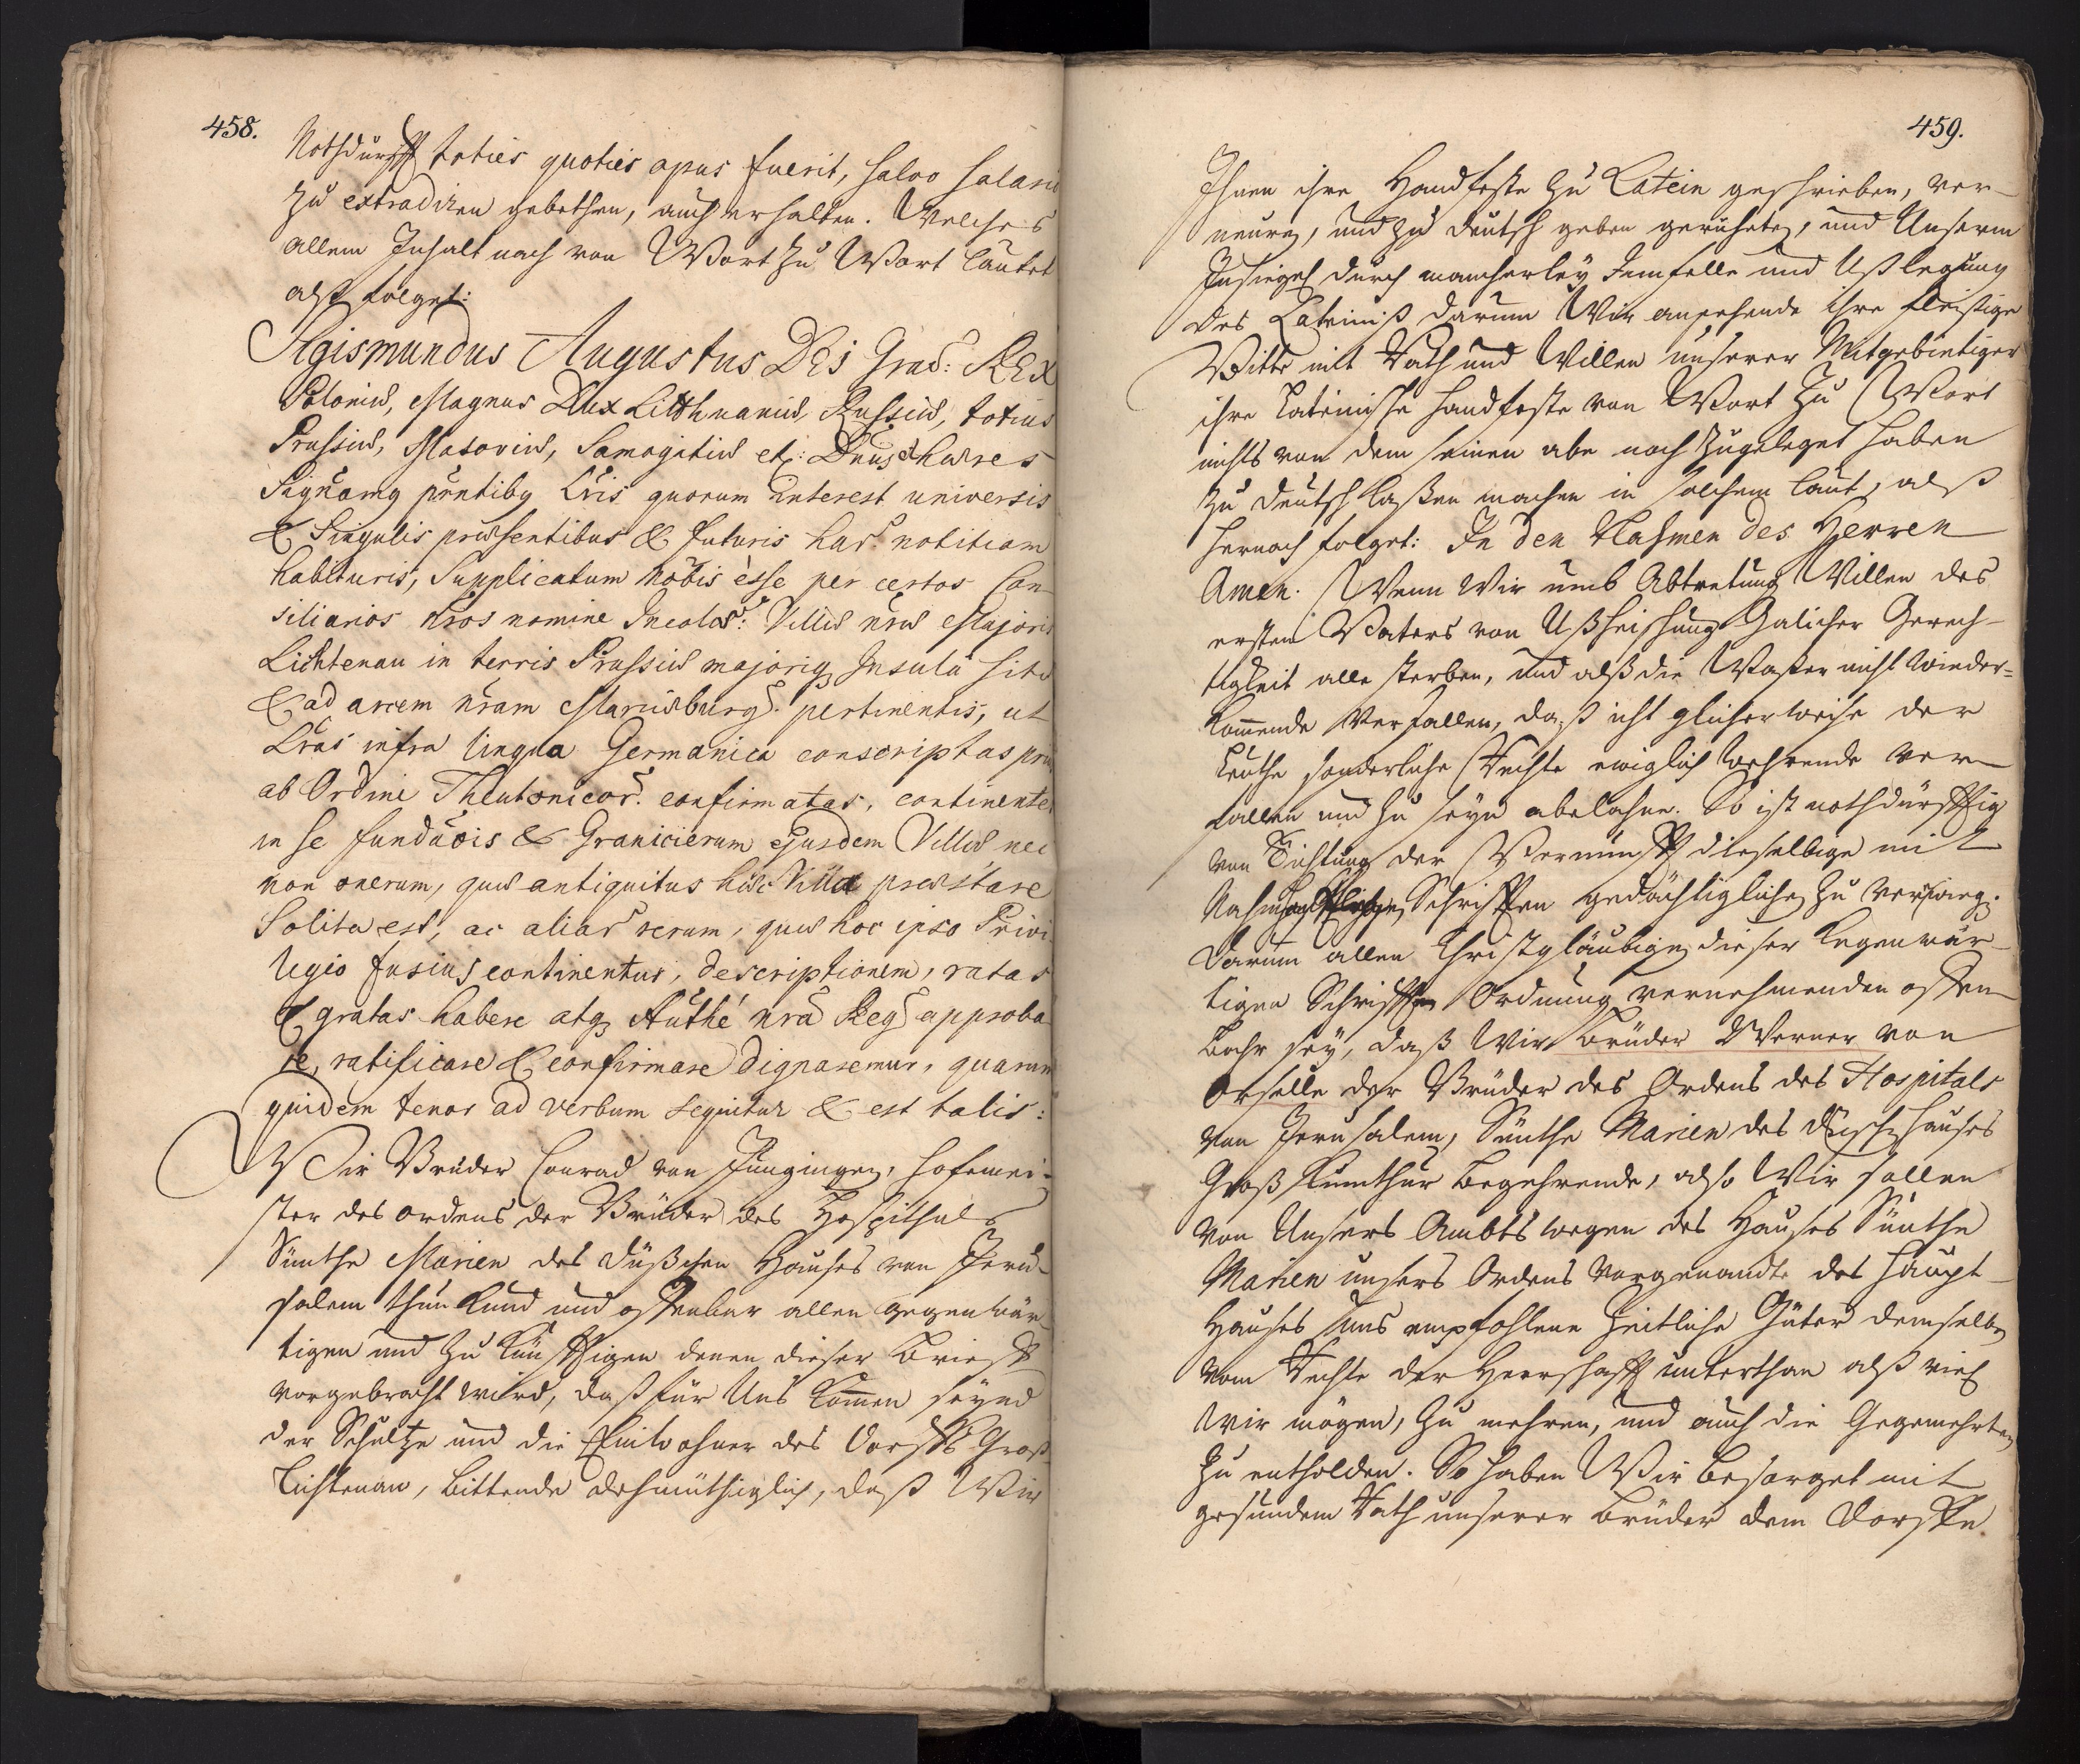 458.
Nothdurfft toties quoties opus fuerit, salvo salario
zu extradiren gebethen, auch erhalten. Welches
allem Inhalt nach von Wort zu Wort lautet
alß folget:
Sigismundus Augustus Dei Grac: Rex
Poloniæ, Magnus Dux Litthuaniæ, Russiæ, totius
Prussiæ, Masoviæ, Samogitiæ etc: Dnus & hæres
Significamq pñtibq Lris quorum interest universis
& singulis præsentibus & futuris har. notitiam
habituris, Supplicatum nobis esse per certos Con-
siliarios nros nomine Incolar: Villæ nræ Majoris
Lichtenau in terris Prussiæ majoriq Insula sitæ
& ad arcem nram Mariæburg. pertinentis, ut
Lras infra lingua Germanica conscriptas prius
ab Ordine Theutonicor. confirmatas, continentes
in se fundaois & Granicierum ejusdem Villæ nec
non onerum, quæ antiquitus hæc Villa præstare
Solita est, ac aliar rerum, quæ hoc ipso Privi-
legio fusius continentur, descriptionem, ratas
& gratas habere atq Authe nra Reg approba-
re, ratificare & confirmare dignaremur, quarum
quidem tenor ad verbum sequitur & est talis:
Wir Bruder Conrad von Jungingen, Hofemei-
ster des Ordens der Brüder des Hospithals
Sünthe Marien des düßchen Hauses von Jeru-
salem thun kund und offenbar allen gegenwär-
tigen und zu künfftigen denen dieser Brieff
vorgebracht wird, daß für Uns kom̄en seynd
der Schultze und die Einwohner des Dorffs Groß
Lichtenau, bittende dehmüthiglich, daß Wir
459.
Ihnen ihre Handfeste zu Latein geschrieben, ver-
neuren, und zu deutsch geben geruheten, und Unserm
Insiegel durch mancherley Irmfelle und Ußlegung
des Lateiniß darum Wir ansehende ihre fleißige
Bitte mit Rath und Willen unserer Mitgebietiger
ihre Lateinische Handfeste von Wort zu Wort
nichts von dem seinen abe noch zugeleget haben
zu deutsch laßen machen in solchem laut, alß
hernach folget: In den Nahmen des Herren
Amen. Wenn Wir umb Abtretung Willen des
ersten Vaters von Ußheischung Galicher Gerech-
tigkeit alle sterben, und alß die Waßer nicht wieder-
kom̄ende Verfallen, daß icht glicherweise der
Leuthe sonderliche Rechte ewiglich wehrende ver-
fallen und zu seyn abelaßen. So ist nothdürfftig
von Tichtung der Vernunfft dieselbige mit
Schrifften gedächtigliche zu
Darum allen Christgläubigen dieser kegenwär-
tigen Schrifften Ordnung vernehmenden offen-
bahr sey, daß Wir Bruder Werner von
Orselle der Brüder des Ordens des Hospitals
von Jerusalem, Sünthe Marien des düsche Hauses
Groß Kumthur begehrende, also Wir sollen
von Unsers Ambts wegen des Hauses Sünthe
Marien unsers Ordens vorgenandte des Haupt-
Hauses uns empfohlene zeitliche Güter demselben
vom Rechte der Herrschafft unterthan alß viel
Wir mögen, zu mehren, und auch die Gegenwehrten
zu enthalden. So haben Wir besorget mit
gesundem Rath unserer Brüder dem Dorffe